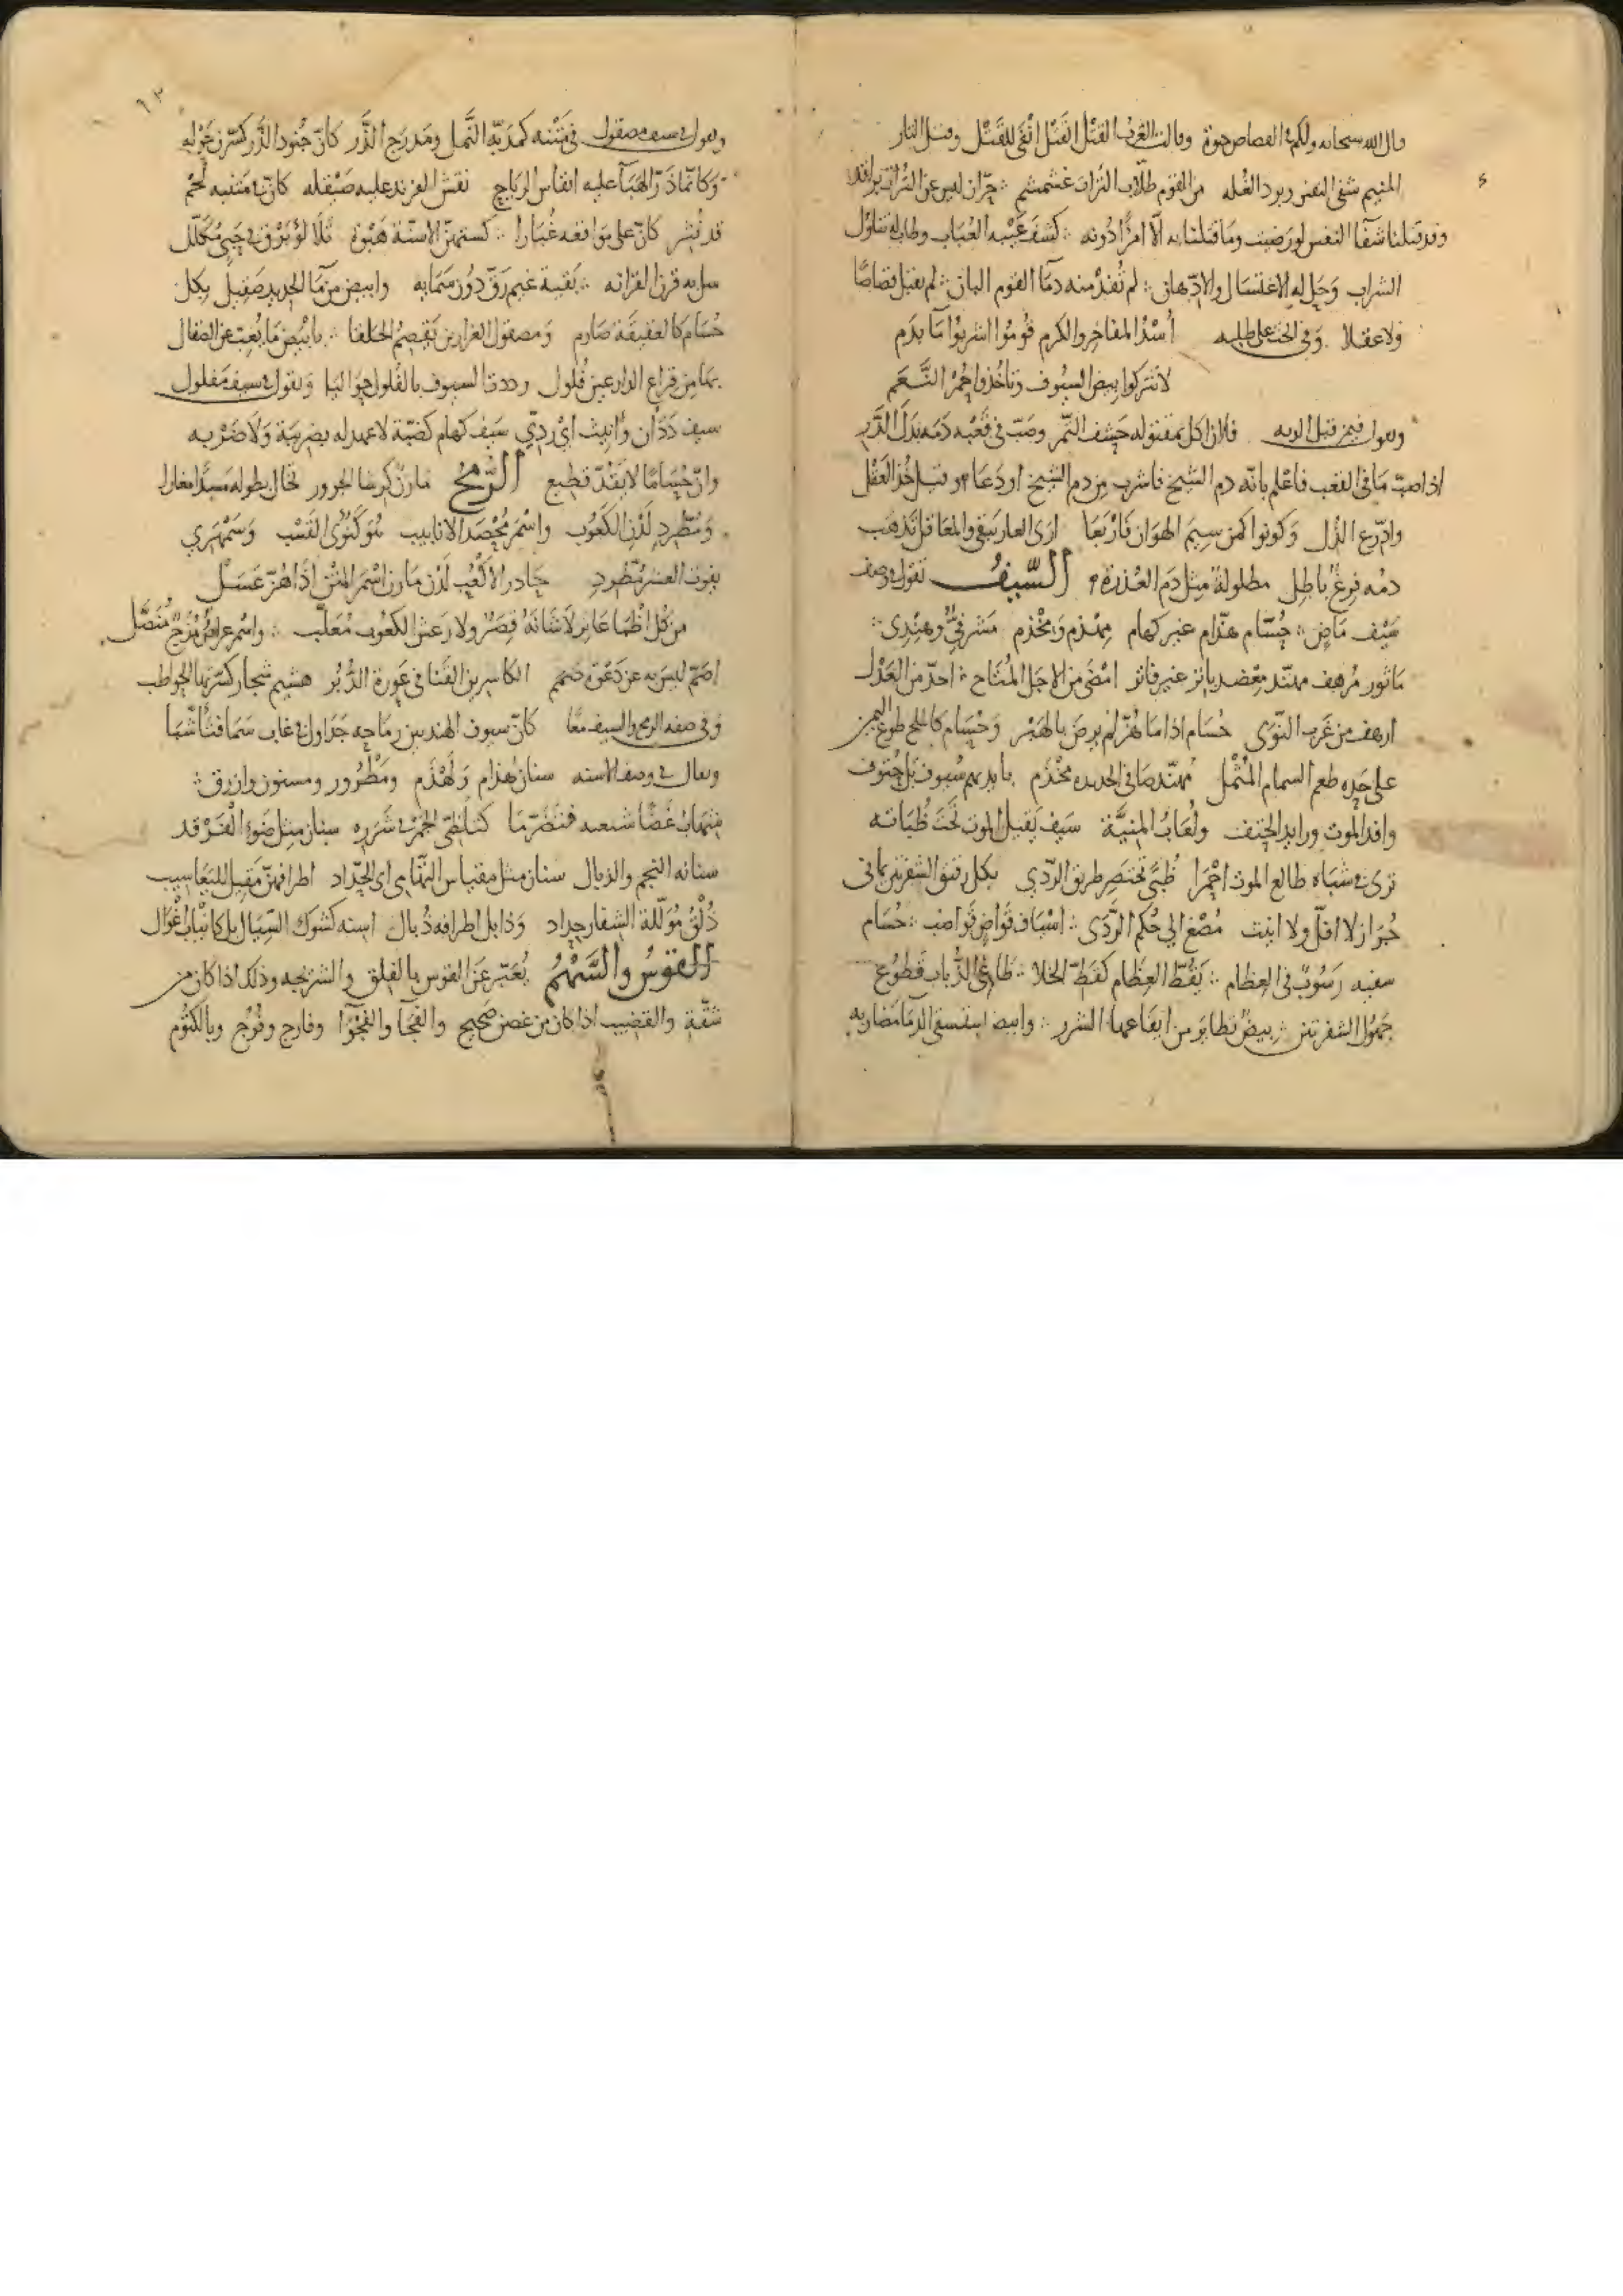 قال الله سبحانه ولكم في القصاص حيوة وقالت العرب القتل القتل انفى للقتل وقتل الثار
المنيم شفى النفس وبرد الغله من القوم طلاب الترات غشمشم
وقد قتلنا شفآ النفس لو رضيت وما قتلنا به الا امرًا دونه كشف عيبه العتاب وطاب له تناول
الشراب وحل له الاغتسال والادهان لم تفد منه دمآ القوم البان لم يقبل قصاصًا
ولا عقلا وفي الحث على طلبه أسد المفاخر والكرم قوموا اشربوا مآ بدم
لا تتركوا بيض السيوف وتاخذوا حمر النعم
ويقول فيمن قبل الديه فلان اكل بمقتوله حشف التمر وصب في قعبه دمه بدل الدر
اذا صب ما في القعب فاعلم بانه دم الشيخ فاشرب من دم الشيخ او دعا وقبل خذ العقل
وادرع الذل وكونوا كمن سيم الهوان فاربعا ارى العار يبقى والمعاقل تذهب
دمه فرغ باطل مطلولة مثل دم العذرة السيف تقول في وصف
سيف ماض حسام هذام غير كهام مهذم ومخذم مشرفي وهندي
ماثور مرهف مهند معضد باتر غير فاتر امضى من الاجل المتاح احد من العذل
ارهف من غرب النوى حسام اذا ما هز لم يرض بالهبر وحسام كالملح طوع اليمين
على حده طعم السمام المثمل مهند صافي الحديده مخذم بايديهم سيوف بل حتوف
وافد الموت ورايد الحتف ولعاب المنية سيف يقيل الموت تحت ظباته
ترى في شباه طالع الموت احمرا ظبى تختصر طريق الردي بكل رقيق الشفرتين يماني
جراز لا افل ولا انيث مصغ الى حكم الردى اسياف قواض قواضب حسام
سفيه رسوب في العظام يقط العظام كقط الخلا ظامي الذباب قطوع
جهول الشفرتين بيض تطاير من ايقاعها الشرر وابيض يستسقى الدما مضاربه
ويقول في سيف مصقول في متنه كمدبة النمل ومدرج الذر كان جنود الذر كسرن حوله
وكانما ذر الهبآ عليه انفاس الرياح نقش الفرند عليه صيقله كان متنيه لحم
قد نشر كان على مواقعه غبارا كستهن الاسنة هبوة تلالؤ برق في حبي مكلل
سل به قرن الغزاله بقية غيم رق دون سمايه وابيض من مآ الحديد صقيل بكل
حسام كالعقيقة صارم ومصقول الغرارين يقصم الحلقا بابيض ما يعيب عن الصقال
بها من قراع الدارعين فلول رددت السيوف بالفلول حواليا ويقول في سيف مفلول
سيف ددان وانيث اي ردي سيف كهام كضبة لا عهد له بضريبة ولا ضربه
وان حساما لا يقد قطيع الرمح مارن كرشا الجرور تخال بطوله مسدا مغارا
ومطرد لدن الكعوب واسمر محصد الانابيب متوكنوى القسب وسمهري
يفوت العشر مطرد حادر الاكعب لدن مارن اسمر المتن اذا هز عسل
من كل اظما عاتر لا شانه قصر ولا رعش الكعوب معلب واسمر عراص مزج منصل
اصم ليس به عن دعوة صمم الكاسرين القنا في عورة الدبر هشيم شجار كسرتها الحواطب
وفي صفه الرمح والسيف معًا كان سيوف الهند بين رماحه جداول في غاب سما فتاشبا
ويقال في وصف الاسنه سنان هذام ولهذم ومطرور ومسنون وازرق
شهاب غضا شيعه فتضرما كتلظى الجمر في شرره سنان مثل ضوء الفرقد
سنانه النجم والذبال سنان مثل مقباس النهامي اي الحداد اطرافهن مقيل لليعاسيب
ذلق مؤللة الشفار حداد وذابل اطرافه ذبال اسنه كشوك السيال بل كانياب اغوال
القوس والسهم يعبر عن القوس بالفلق والشريجه وذلك اذا كان من
شقة والقضيب اذا كان من غصن صحيح والفجا والفجوا وفارج وفرج وبالكتوم